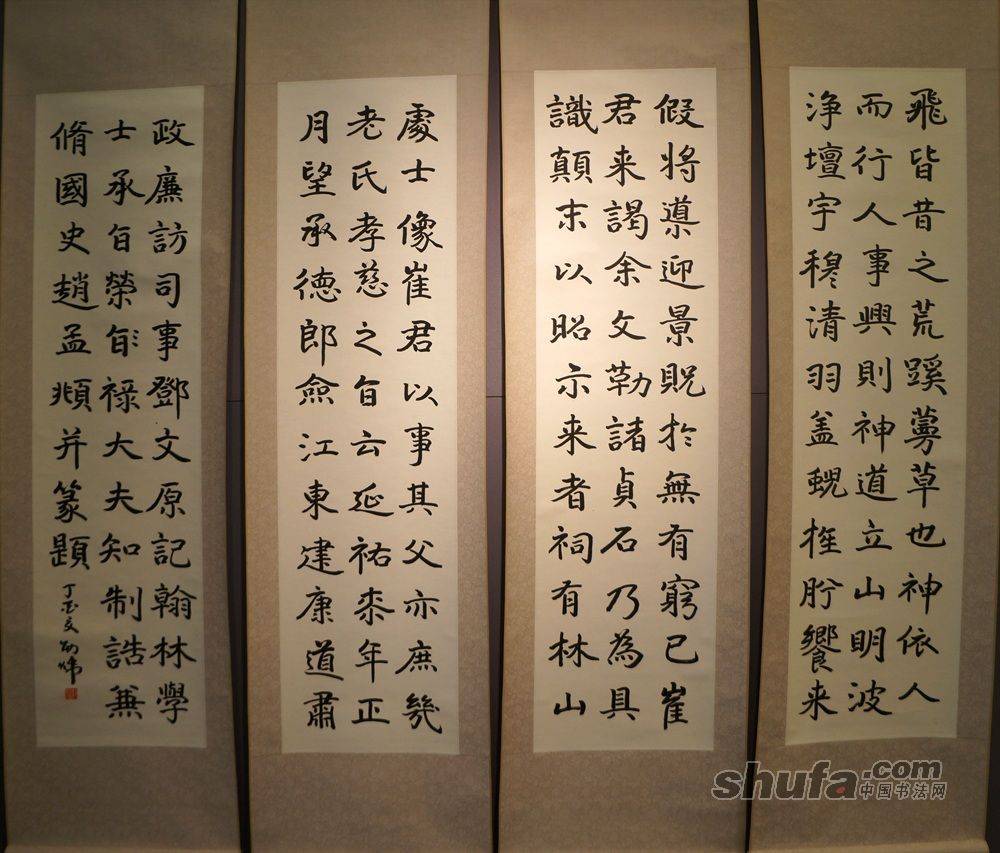 飛皆昔之荒蹊蔓草也神依人
而行人事興則神道立山明波
浄壇宇穆清羽盖蜺旌肹饗来
假将導迎景貺於無有窮已崔
君来謁余文勒諸貞石乃為具
識顛末以昭示来者祠有林山
處士像崔君以事其父亦庶幾
老氏孝慈之旨云延祐柒年正
月望承德郎僉江東建康道肅
政廉訪司事鄧文原記翰林學
士承旨榮祿大夫知制誥兼
脩國史趙孟頫并篆題
丁酉
shufa.com
中国书法网